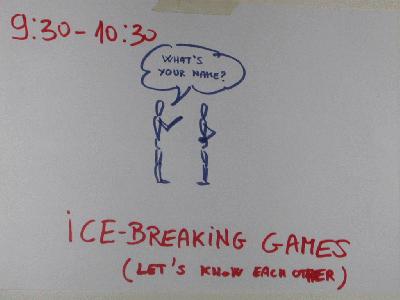 9:30-10:30
WHAT'S
YOUR NAME?
iCE-BREAKiNG GAMES
(LET'S KNOW EACH OTHER)